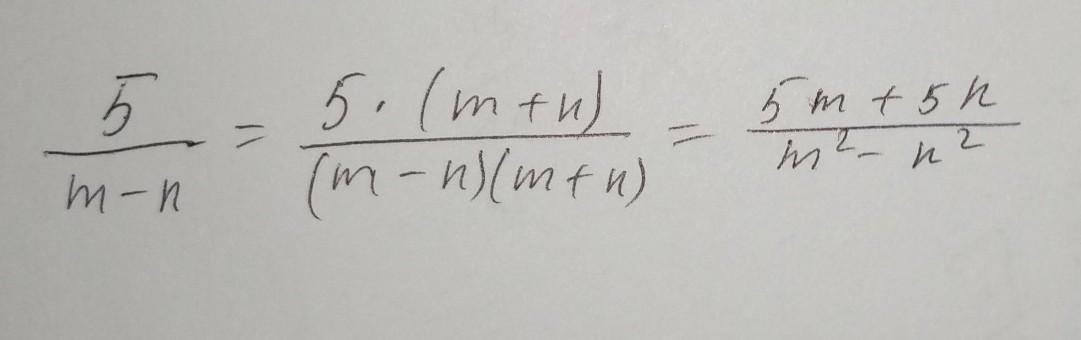 5/(m-n) = 5·(m+n)/((m-n)(m+n)) = (5m+5n)/(m²-n²)